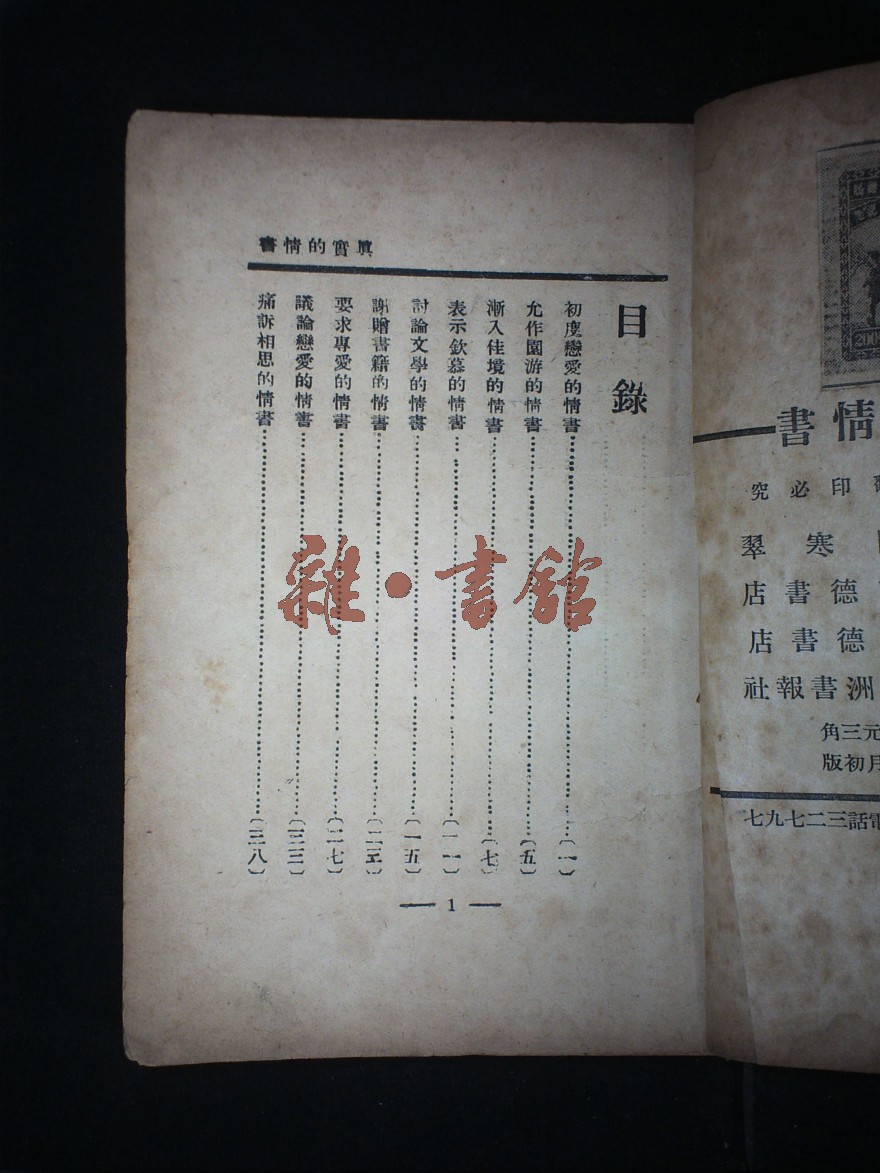 眞實的情書
目錄
初度戀愛的情書⋯⋯(一)
允作園游的情書⋯⋯(五)
漸入佳境的情書⋯⋯(七)
表示欽慕的情書⋯⋯(一一)
討論文學的情書⋯⋯(一五)
謝贈書籍的情書⋯⋯
要求專愛的情書⋯⋯(二七)
議論戀愛的情書⋯⋯(三三)
痛訴相思的情書⋯⋯(三八)
— 1 —
雜·書館
200
情書
印必究
寒翠
德書店
德書店
洲書報社
元三角
月初版
電話三二七九七